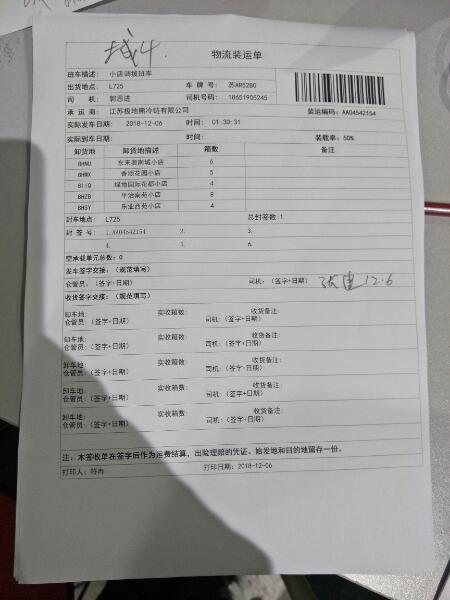 城4
物流装运单
班车描述： 小店调拨班车
出货地点： L725 车 牌 号： 苏AR52B0
司 机： 郭恩进 司机号码： 18651905245
承 运 商： 江苏极地熊冷链有限公司 装运编码：AA04542154
实际发车日期： 2018-12-06 时间： 01:30:31
实际到车日期： 时间： 装载率：50%
卸货地 卸货地描述 箱数 备注
8HNU 东来奥南城小店 6
8HMX 香颂花园小店 5
811Q 绿地国际花都小店 4
8HZB 平治南苑小店 8
8HSY 乐业西苑小店 4
封车地点： L725 总封签数：1
封 签 号： 1.AA04542154 2. 3.
4. 5. 6.
空承载单元总数：0
发车签字交接：（规范填写）
仓管员：（签字+日期） 司机：（签字+日期） 12.6
收货签字交接：（规范填写）
卸车地： 实收箱数： 收货备注：
仓管员：（签字+日期） 司机：（签字+日期）
卸车地： 实收箱数： 收货备注：
仓管员：（签字+日期） 司机：（签字+日期）
卸车地 实收箱数： 收货备注：
仓管员：（签字+日期） 司机：（签字+日期）
卸车地： 实收箱数： 收货备注：
仓管员：（签字+日期） 司机：（签字+日期）
卸车地： 实收箱数： 收货备注：
仓管员：（签字+日期） 司机：（签字+日期）
注：本签收单在签字后作为运费结算，出险理赔的凭证。始发地和目的地留存一份。
打印人：符冉 打印日期：2018-12-06